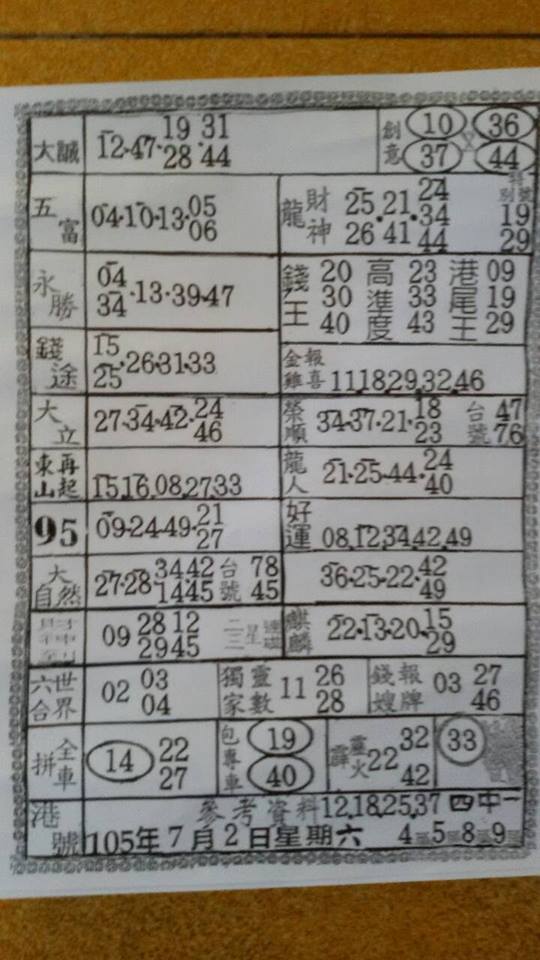 大誠 12·47· 19·31
28 44
創意 10 36
37 44
五富 04·10·13·05
06
龍 財神 25·21·24
34
26 41 44
特別號
19
29
永勝 04·13·39·47
34
錢王 20 高準度 23 港尾王 09
30 33 19
40 43 29
錢途 15·26·31·33
25
金雞報喜 11,18,29,32,46
大立 27·34·42·24
46
榮順 34·37·21·18 台號 47
23 76
東山再起 15,16,08,27,33
龍人 21·25·44·24
40
95 09·24·49·21
27
好運 08,12,34,42,49
大自然 27·28·34·42 台號 78
14 45 45
36·25·22·42
49
09 28 12 二三星
29 45
麒麟 22·13·20·15
29
六合世界 02 03
04
獨家靈數 11 26
28
錢嫂報牌 03 27
46
拼全車 14 22
27
包專車 19
40
霹靂火 22 32
42
33
港號 參考資料 12,18,25,37 四中一
105年7月2日星期六 4 5 8 9